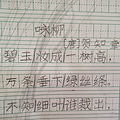 咏柳
(唐)贺知章
碧玉妆成一树高,
万条垂下绿丝绦,
不知细叶谁裁出,